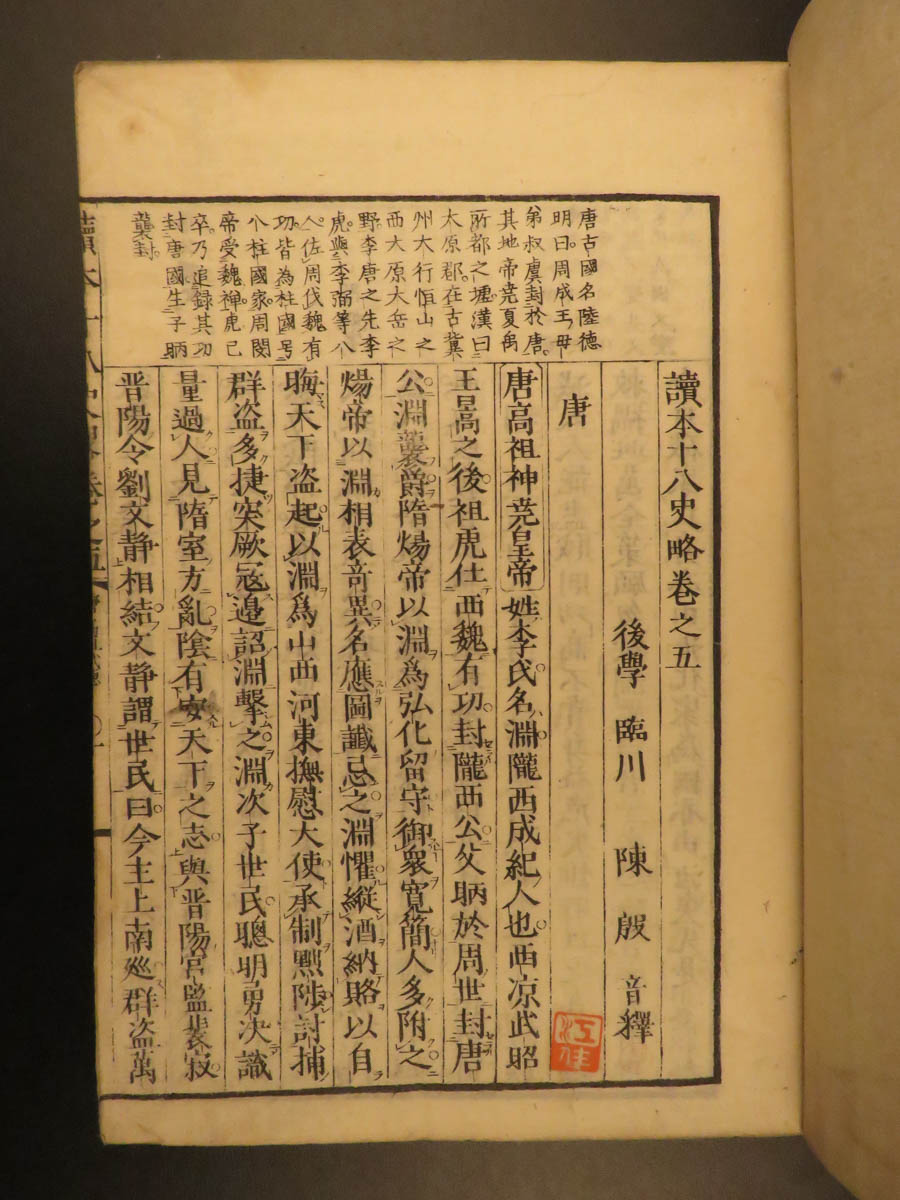 讀本十八史略卷之五
後學 臨川 陳殷 音釋
唐
唐高祖神堯皇帝姓李氏名淵隴西成紀人也西凉武昭
王暠之後祖虎仕西魏有功封隴西公父昞於周世封唐
公淵襲爵隋煬帝以淵爲弘化留守御衆寬簡人多附之
煬帝以淵相表竒異名應圖讖忌之淵懼縱酒納賂以自
晦天下盜起以淵爲山西河東撫慰大使承制黜陟討捕
群盜多捷突厥冦邉詔淵擊之淵次子世民聰明勇决識
量過人見隋室方亂陰有安天下之志與晋陽宫監裴寂
晋陽令劉文静相結文静謂世民曰今主上南廵群盜萬
唐古國名陸德
明曰周成王毋
弟叔虞封於唐
其地帝堯夏禹
所都之墟漢曰
太原郡在古冀
州大行恒山之
西大原大岳之
野李唐之先李
虎與李弼等八
人佐周伐魏有
功皆為柱國号
八柱國家周閔
帝受魏禅虎已
卒乃追録其功
封唐國生子昞
襲封
讀本十八史略卷之五